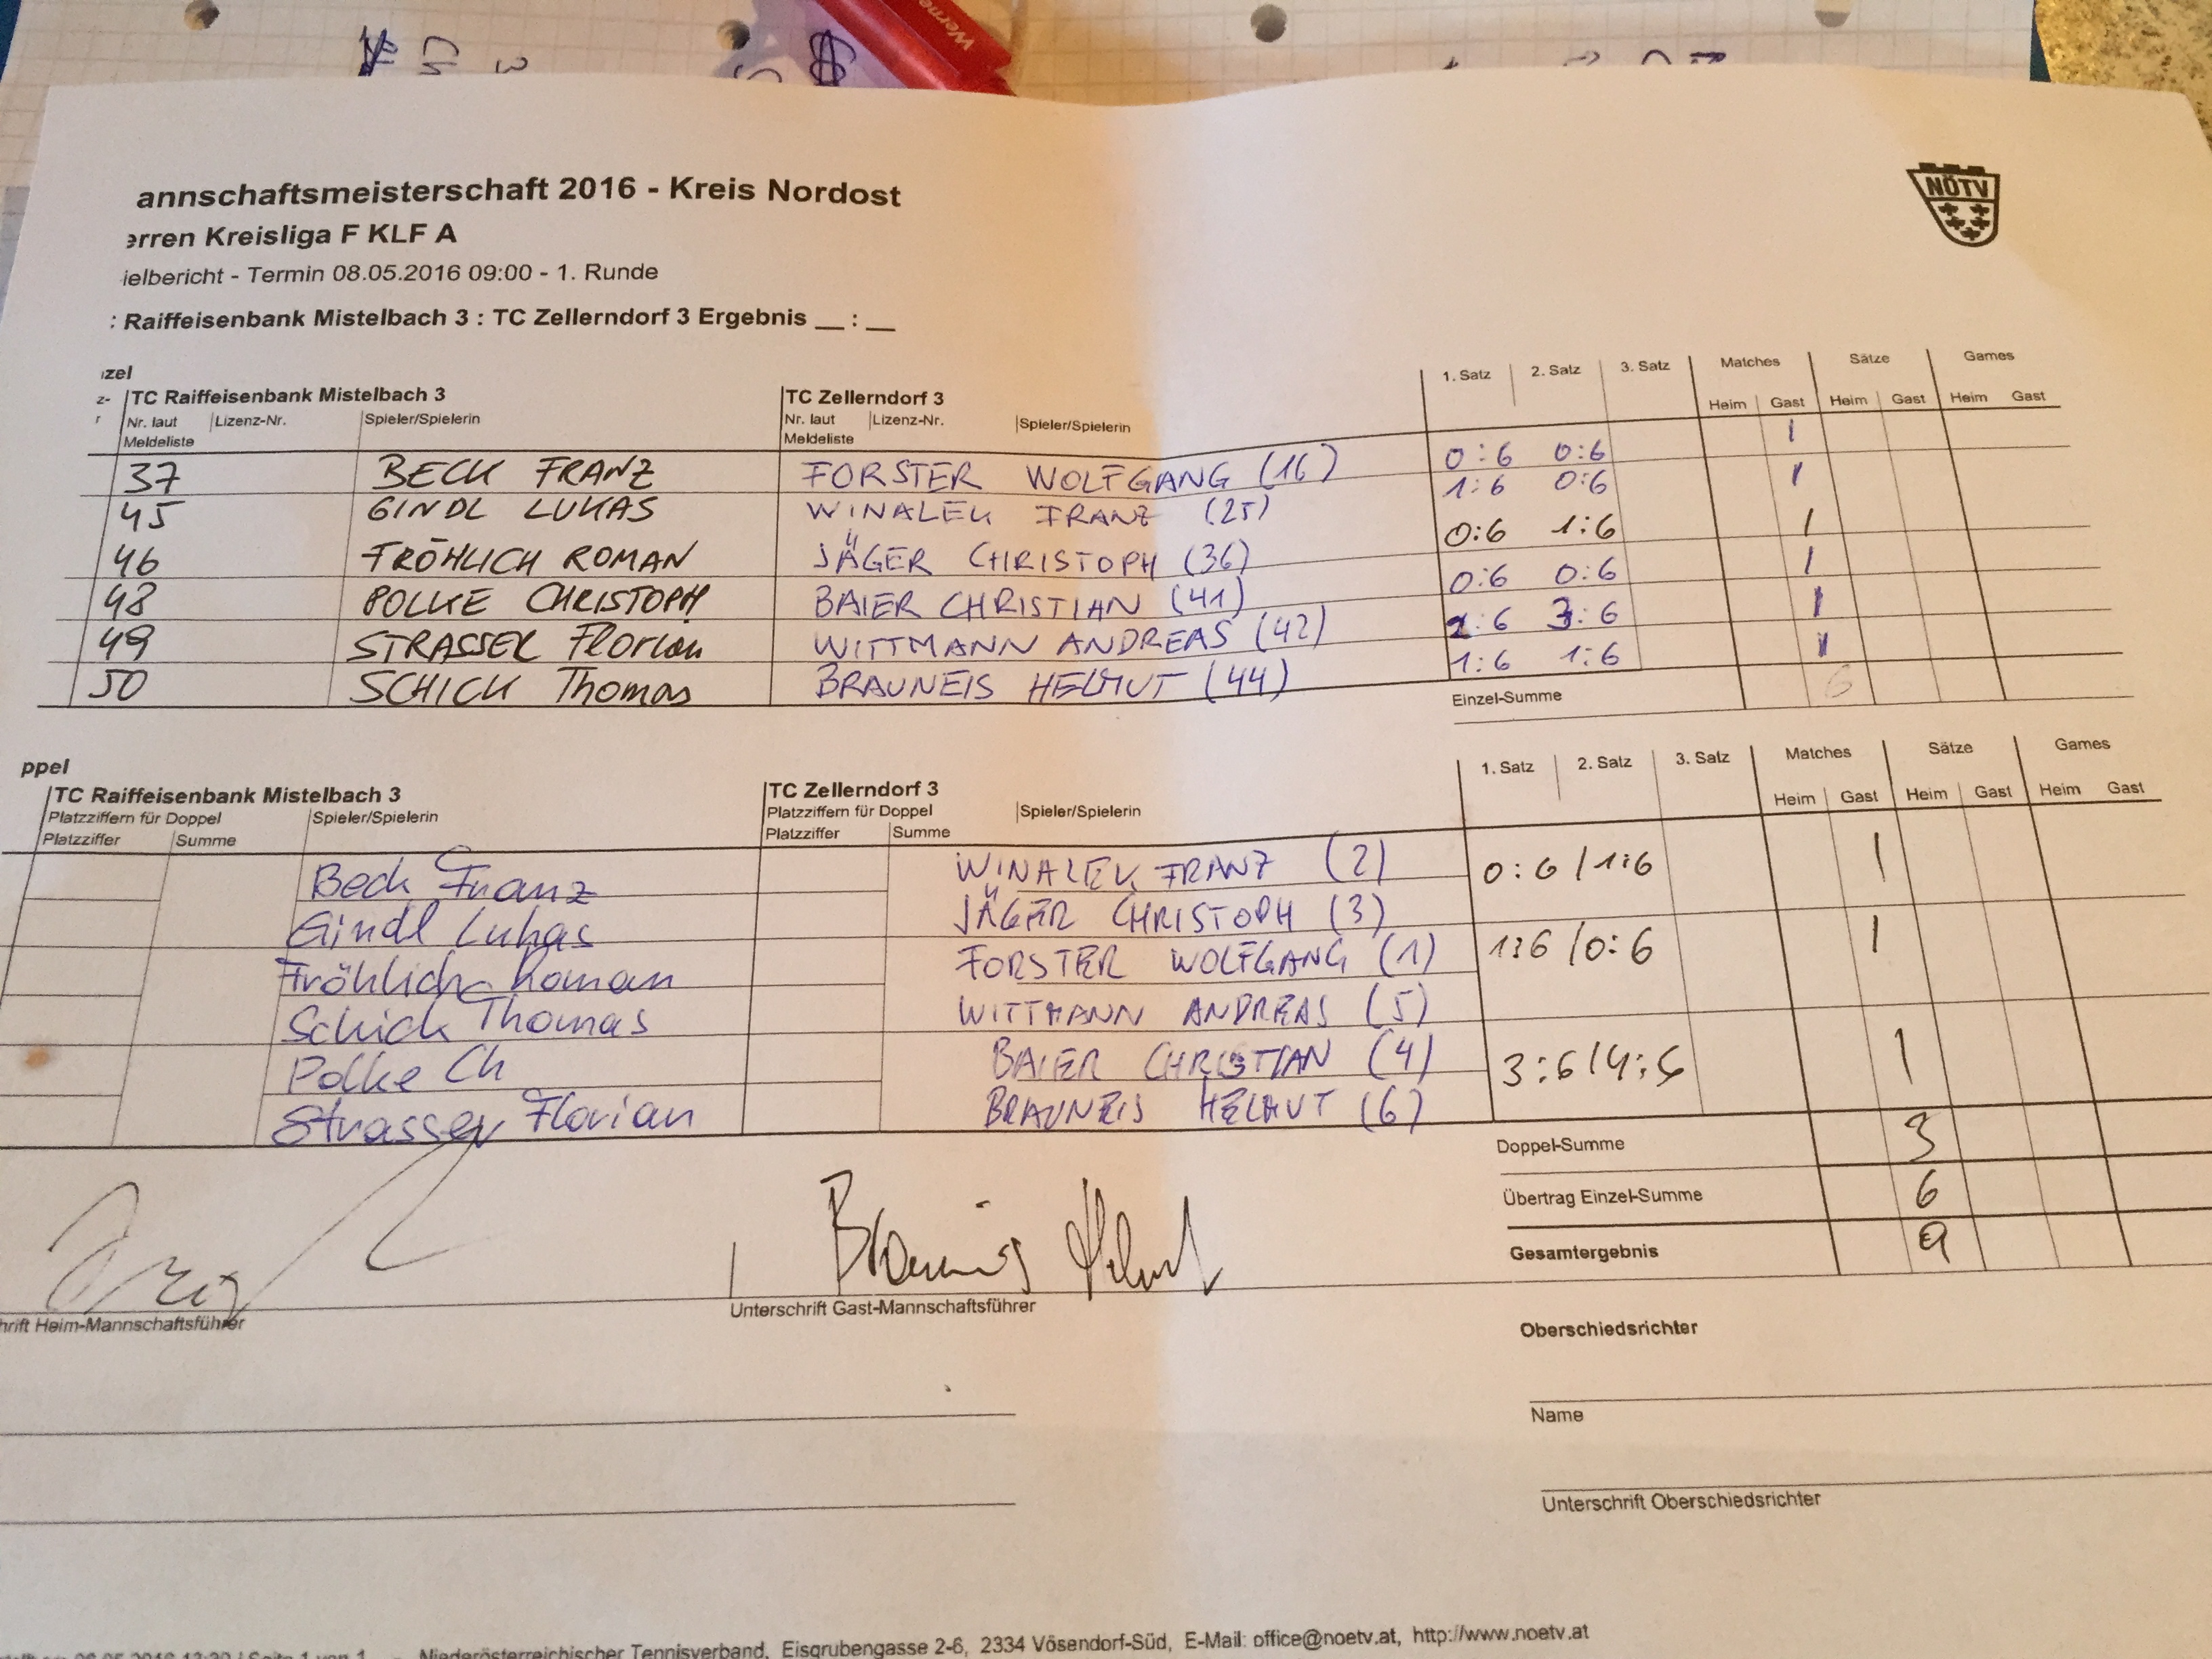 Werne
annschaftsmeisterschaft 2016 - Kreis Nordost
NÖTV
erren Kreisliga F KLF A
ielbericht - Termin 08.05.2016 09:00 - 1. Runde
: Raiffeisenbank Mistelbach 3 : TC Zellerndorf 3 Ergebnis __ : __
zel
1. Satz 2. Satz 3. Satz Matches Sätze Games
z- TC Raiffeisenbank Mistelbach 3 TC Zellerndorf 3
Heim Gast Heim Gast Heim Gast
r Nr. laut Lizenz-Nr. Spieler/Spielerin Nr. laut Lizenz-Nr. Spieler/Spielerin
Meldeliste Meldeliste
37 BECK FRANZ FORSTER WOLFGANG (16) 0:6 0:6 1
45 GINDL LUKAS WINALEK FRANZ (25) 1:6 0:6 1
46 FRÖHLICH ROMAN JÄGER CHRISTOPH (36) 0:6 1:6 1
48 POLKE CHRISTOPH BAIER CHRISTIAN (41) 0:6 0:6 1
49 STRASSER Florian WITTMANN ANDREAS (42) :6 3:6 1
50 SCHICK Thomas BRAUNEIS HELMUT (44) 1:6 1:6 1
Einzel-Summe 6
ppel
1. Satz 2. Satz 3. Satz Matches Sätze Games
TC Raiffeisenbank Mistelbach 3 TC Zellerndorf 3
Heim Gast Heim Gast Heim Gast
Platzziffern für Doppel Spieler/Spielerin Platzziffern für Doppel Spieler/Spielerin
Platzziffer Summe Platzziffer Summe
Beck Franz WINALEK FRANZ (2) 0:6 / 1:6 1
Gindl Lukas JÄGER CHRISTOPH (3)
Fröhlich Roman FORSTER WOLFGANG (1) 1:6 / 0:6 1
Schick Thomas WITTMANN ANDREAS (5)
Polke Ch BAIER CHRISTIAN (4) 3:6 / 4:6 1
Strasser Florian BRAUNEIS HELMUT (6)
Doppel-Summe 3
Übertrag Einzel-Summe 6
Gesamtergebnis 9
Brauneis Helmut
hrift Heim-Mannschaftsführer Unterschrift Gast-Mannschaftsführer
Oberschiedsrichter
Name
Unterschrift Oberschiedsrichter
06.05.2016 13:30 / Seite 1 von 1 - Niederösterreichischer Tennisverband, Eisgrubengasse 2-6, 2334 Vösendorf-Süd, E-Mail: office@noetv.at, http://www.noetv.at